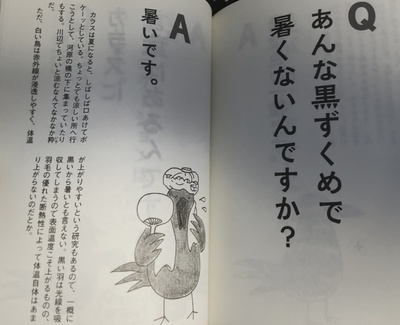 Q
あんな黒ずくめで
暑くないんですか？
A
暑いです。
カラスは夏になると、しばしば口あけてボ
ケーッとしている。ちょっとでも涼しい所へ行
こうとして、河原の橋の下に集まっていたり
もする。川辺でちょいと涼むなんてなかなか粋
だ。
ただ、白い鳥は赤外線が浸透しやすく、体温
が上がりやすいという研究もあるので、一概に
黒いから暑いとも言えない。黒い羽は光線を吸
収してしまうので表面温度こそ上がるものの、
羽毛の優れた断熱性によって体温自体はあま
り上がらないのだとか。